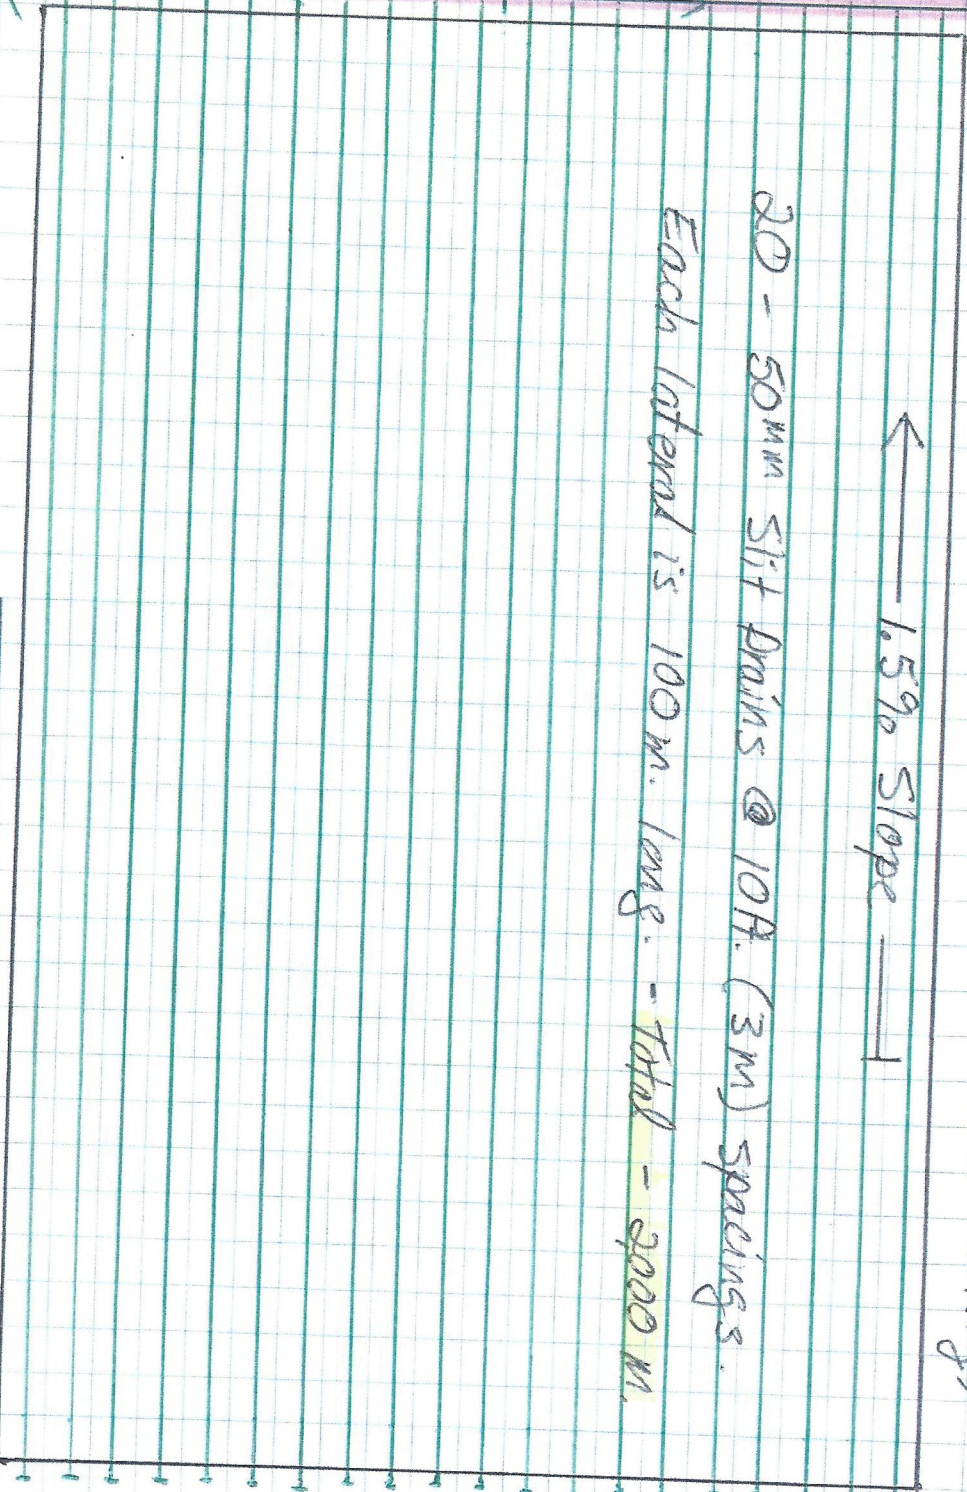 1.5% Slope
20 - 50mm Slit Drains @ 10ft. (3m) spacings.
Each lateral is 100m. long. - Total - 2,000 m.